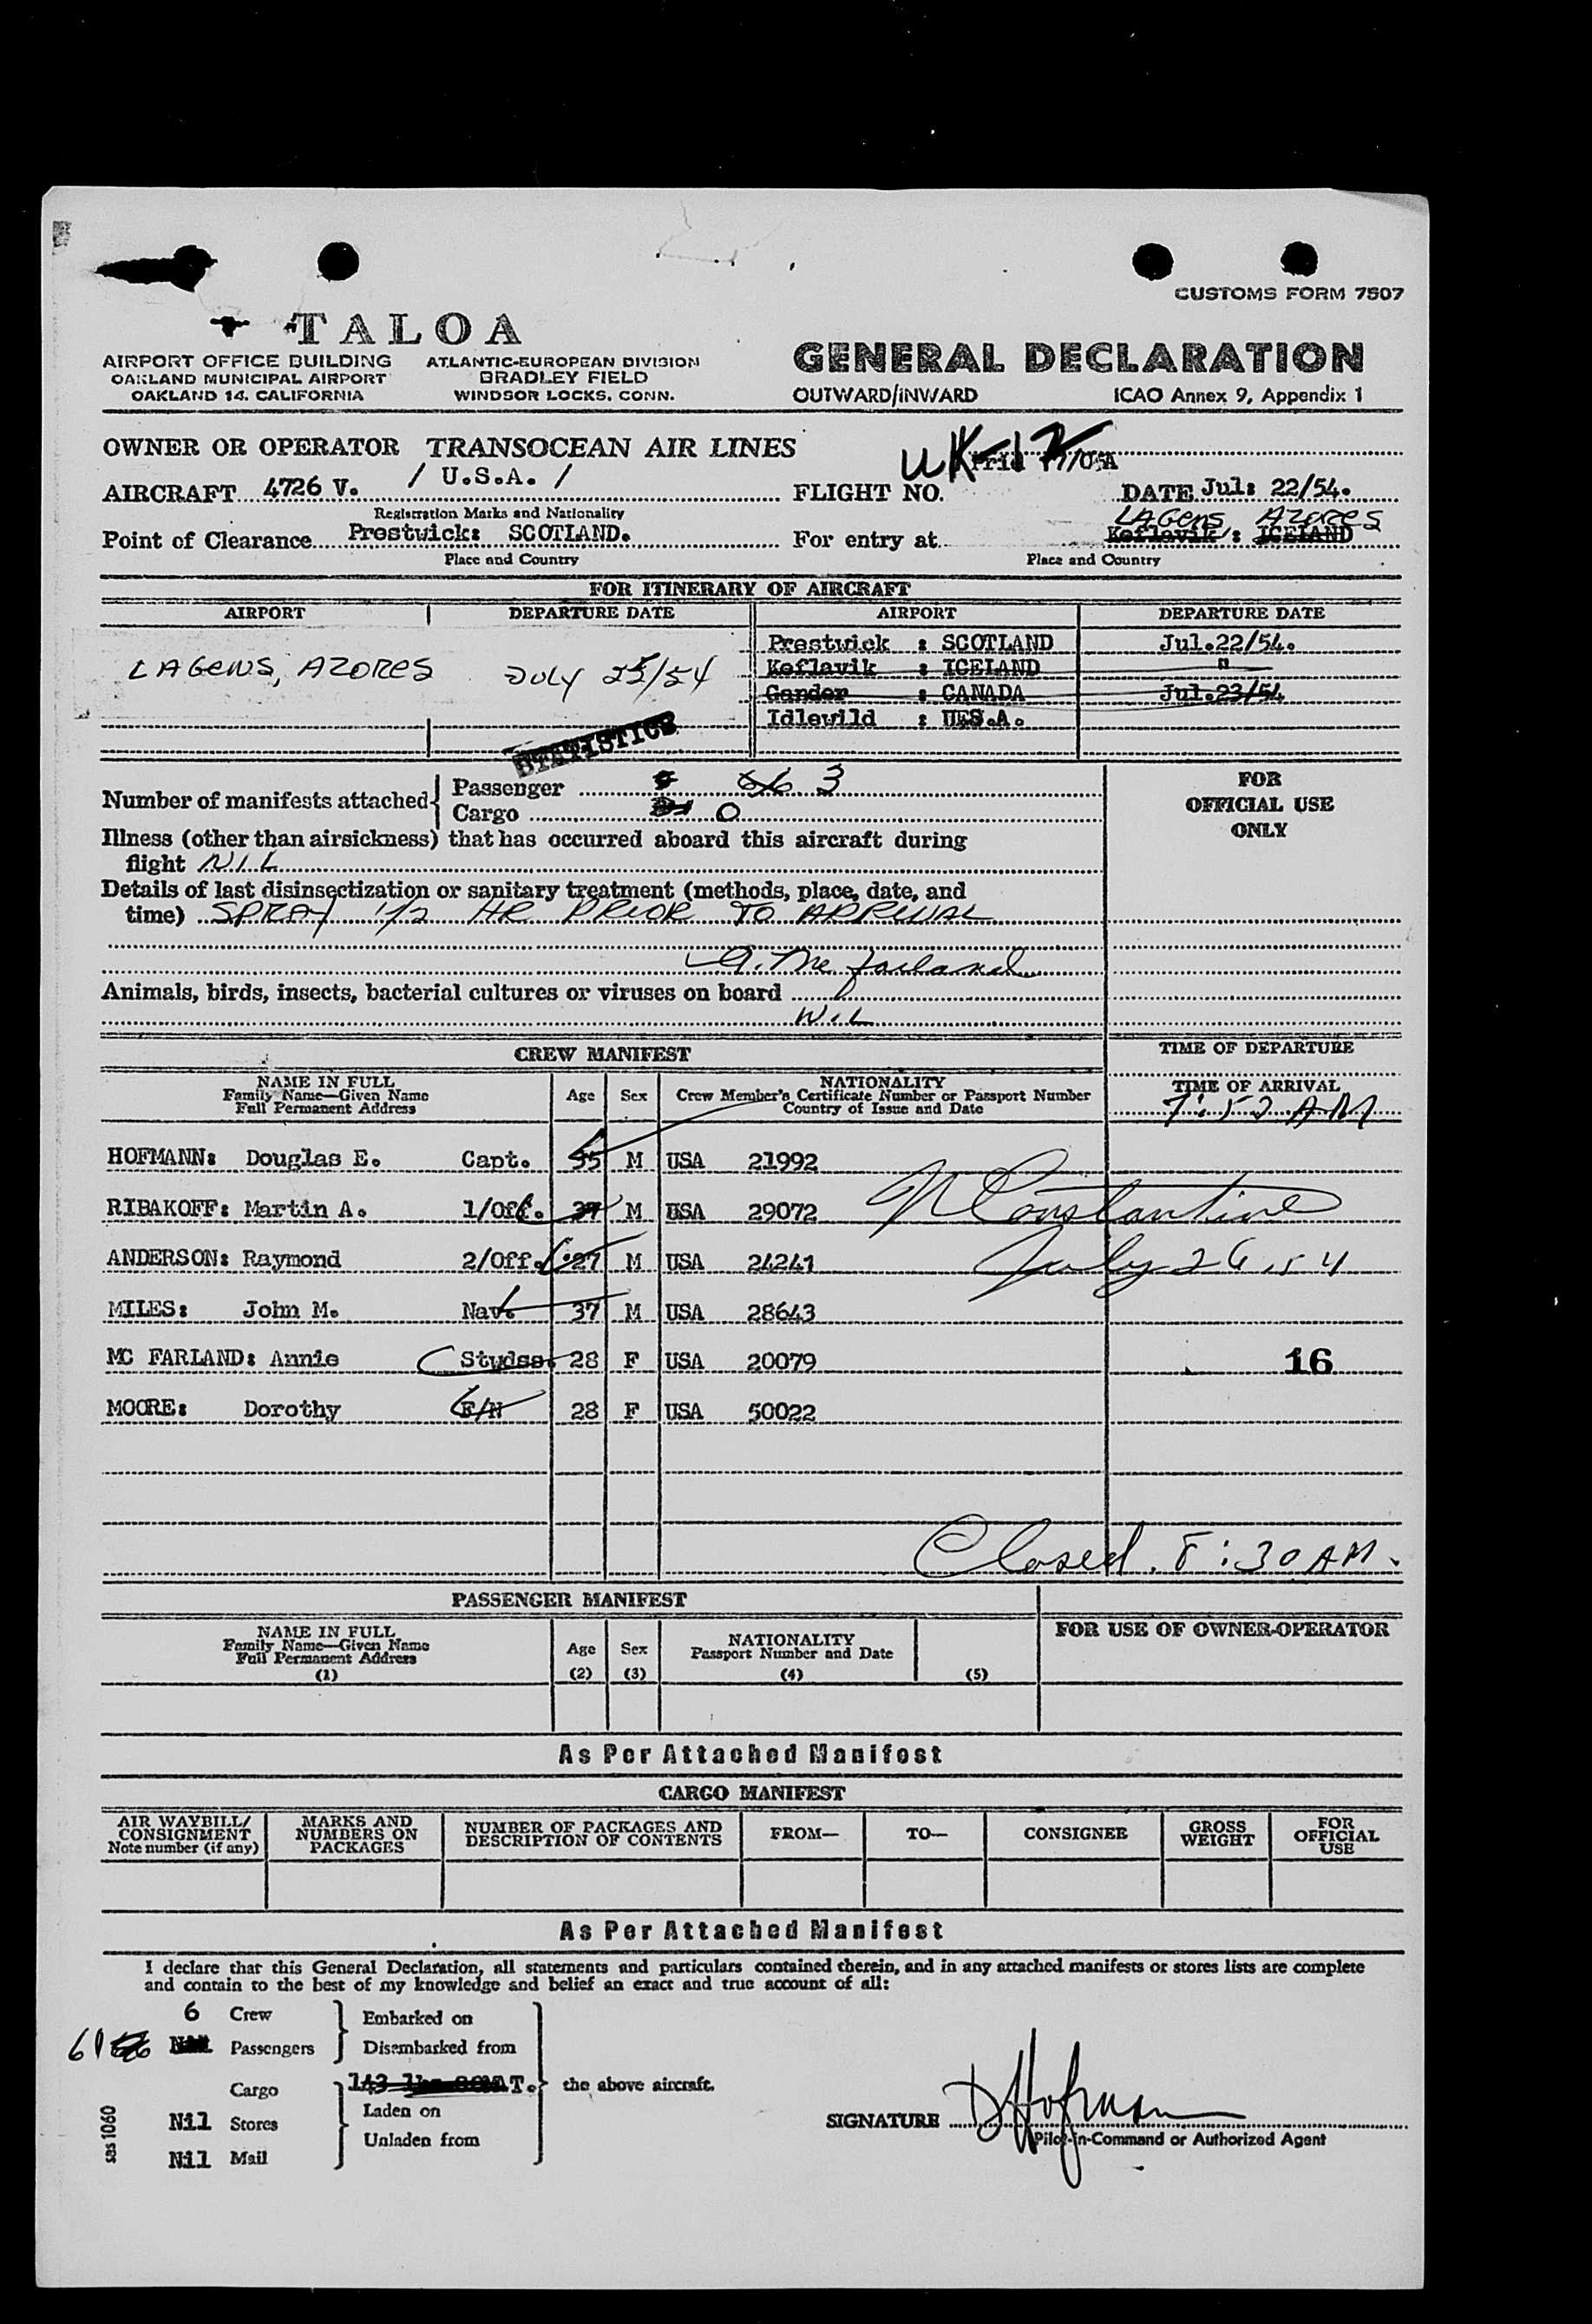 CUSTOMS FORM 7507
TALOA
AIRPORT OFFICE BUILDING
OAKLAND MUNICIPAL AIRPORT
OAKLAND 14, CALIFORNIA
ATLANTIC-EUROPEAN DIVISION
BRADLEY FIELD
WINDSOR LOCKS, CONN.
GENERAL DECLARATION
OUTWARD/INWARD ICAO Annex 9, Appendix 1
OWNER OR OPERATOR TRANSOCEAN AIR LINES
UK-17
AIRCRAFT 4726 V. / U.S.A. / FLIGHT NO. DATE Jul: 22/54.
Registration Marks and Nationality
LAGENS, AZORES
Point of Clearance Prestwick: SCOTLAND. For entry at Keflavik: ICELAND
Place and Country Place and Country
FOR ITINERARY OF AIRCRAFT
AIRPORT DEPARTURE DATE AIRPORT DEPARTURE DATE
Prestwick : SCOTLAND Jul.22/54.
LAGENS, AZORES July 25/54 Keflavik : ICELAND "
Gander : CANADA Jul.23/54
Idlewild : UES.A.
STATISTICS
Number of manifests attached
Passenger 3
Cargo 0
FOR
OFFICIAL USE
ONLY
Illness (other than airsickness) that has occurred aboard this aircraft during
flight NIL
Details of last disinsectization or sanitary treatment (methods, place, date, and
time) SPRAY 1/2 HR PRIOR TO ARRIVAL
A. McFarland
Animals, birds, insects, bacterial cultures or viruses on board
NIL
CREW MANIFEST
TIME OF DEPARTURE
NAME IN FULL
Family Name—Given Name
Full Permanent Address
Age Sex
NATIONALITY
Crew Member's Certificate Number or Passport Number
Country of Issue and Date
TIME OF ARRIVAL
7:52 AM
HOFMANN: Douglas E. Capt. 35 M USA 21992
RIBAKOFF: Martin A. 1/Off. 37 M USA 29072
N Constantine
ANDERSON: Raymond 2/Off. 27 M USA 24241
July 26 54
MILES: John M. Nav. 37 M USA 28643
MC FARLAND: Annie Studss. 28 F USA 20079
16
MOORE: Dorothy F/N 28 F USA 50022
Closed. 8:30 AM.
PASSENGER MANIFEST
NAME IN FULL
Family Name—Given Name
Full Permanent Address
(1)
Age
(2)
Sex
(3)
NATIONALITY
Passport Number and Date
(4)
(5)
FOR USE OF OWNER-OPERATOR
As Per Attached Manifest
CARGO MANIFEST
AIR WAYBILL/
CONSIGNMENT
Note number (if any)
MARKS AND
NUMBERS ON
PACKAGES
NUMBER OF PACKAGES AND
DESCRIPTION OF CONTENTS
FROM—
TO—
CONSIGNEE
GROSS
WEIGHT
FOR
OFFICIAL
USE
As Per Attached Manifest
I declare that this General Declaration, all statements and particulars contained therein, and in any attached manifests or stores lists are complete
and contain to the best of my knowledge and belief an exact and true account of all:
6 Crew
61 Passengers
Embarked on
Disembarked from
Cargo
Nil Stores
Nil Mail
143
Laden on
Unladen from
the above aircraft.
SIGNATURE D Hofmann
Pilot-in-Command or Authorized Agent
sas 1060